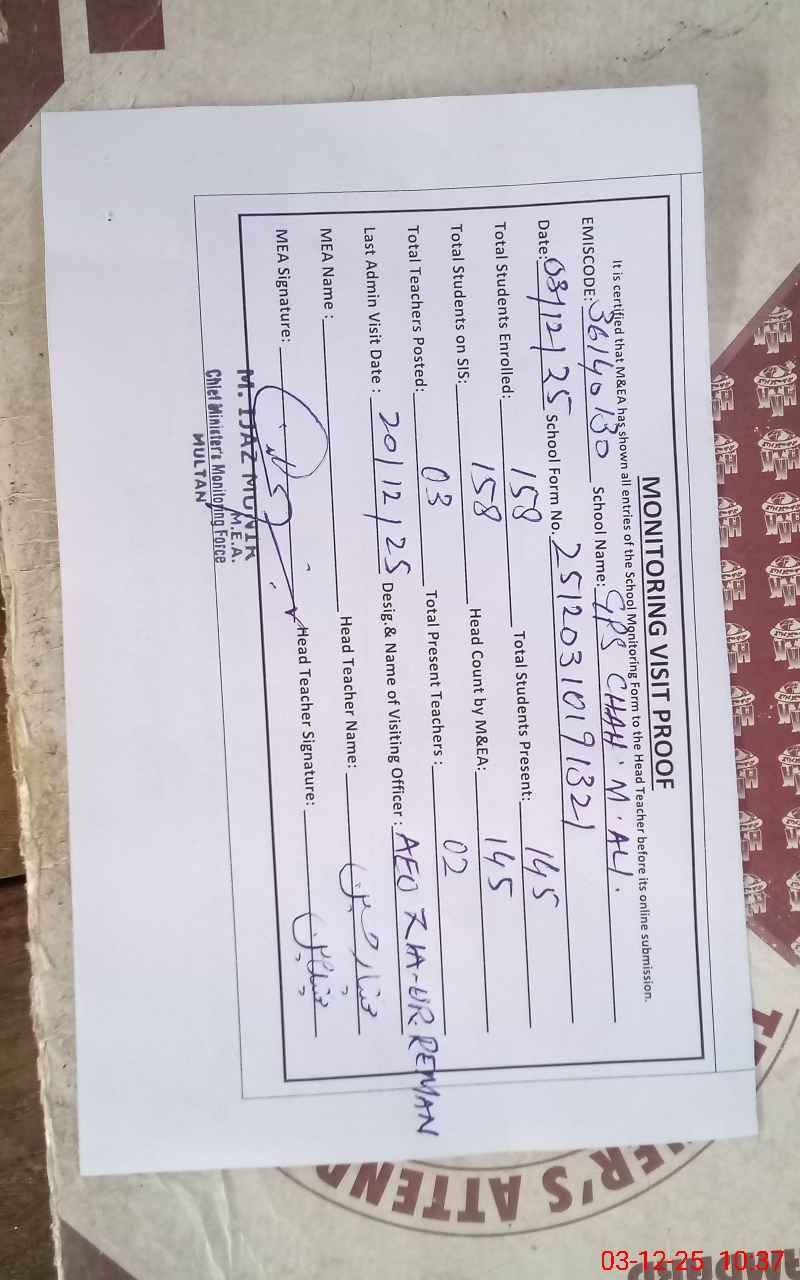 MONITORING VISIT PROOF
It is certified that M&EA has shown all entries of the School Monitoring Form to the Head Teacher before its online submission.
EMISCODE: 36140130 School Name: GPS CHAH. M. ALI.
Date: 03/12/25 School Form No. 25120310191321
Total Students Enrolled: 158 Total Students Present: 145
Total Students on SIS: 158 Head Count by M&EA: 145
Total Teachers Posted: 03 Total Present Teachers : 02
Last Admin Visit Date : 20/12/25 Desig.& Name of Visiting Officer : AEO ZIA-UR-REMAN
MEA Name : Head Teacher Name:
MEA Signature: Head Teacher Signature:
M. IJAZ MUNIR
M.E.A.
Chief Minister's Monitoring Force
MULTAN
HER'S ATTEND
03-12-25 10:37